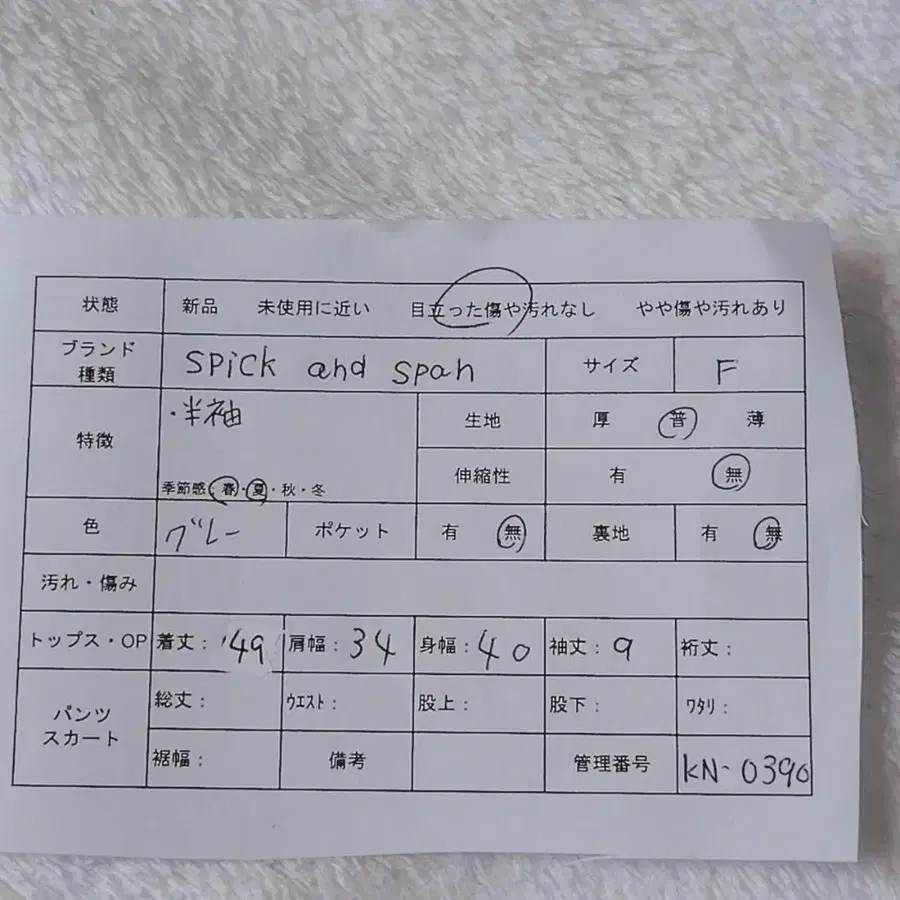 状態 新品 未使用に近い 目立った傷や汚れなし やや傷や汚れあり
ブランド
種類
SPicK and span サイズ F
特徴
・半袖
季節感:春・夏・秋・冬
生地 厚 普 薄
伸縮性 有 無
色 グレー ポケット 有 無 裏地 有 無
汚れ・傷み
トップス・OP 着丈: 49 肩幅: 34 身幅: 40 袖丈: 9 裄丈:
パンツ
スカート
総丈: ウエスト: 股上: 股下: ワタリ:
裾幅: 備考 管理番号 KN-0390